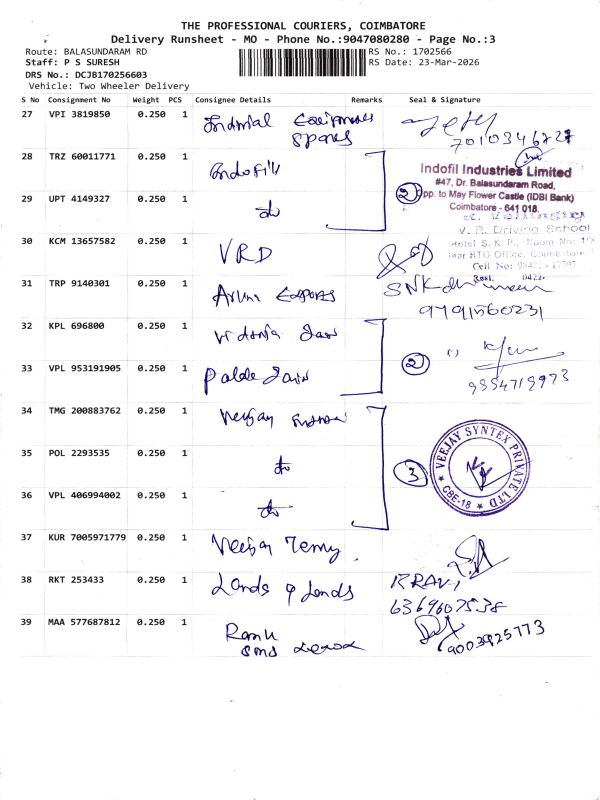 THE PROFESSIONAL COURIERS, COIMBATORE
Delivery Runsheet - MO - Phone No.:9047080280 - Page No.:3
Route: BALASUNDARAM RD
RS No.: 1702566
Staff: P S SURESH
RS Date: 23-Mar-2026
DRS No.: DCJB170256603
Vehicle: Two Wheeler Delivery
S No Consignment No Weight PCS Consignee Details Remarks Seal & Signature
27 VPI 3819850 0.250 1
Spares
7010346727
28 TRZ 60011771 0.250 1 Indofil
Indofil Industries Limited
#47, Dr. Balasundaram Road,
Opp. to May Flower Castle (IDBI Bank)
Coimbatore - 641 018.
29 UPT 4149327 0.250 1 do
2
V. R. Driving School
30 KCM 13657582 0.250 1 VRD
Hotel S. K. P., Room No:
near RTO Office, Coimbatore
Cell No:
31 TRP 9140301 0.250 1
SNK
9791560231
32 KPL 696800 0.250 1
2
33 VPL 953191905 0.250 1
9894719973
34 TMG 200883762 0.250 1 Veejay
35 POL 2293535 0.250 1 do
3
VEEJAY SYNTEX PRIVATE LTD
CBE-18
36 VPL 406994002 0.250 1 do
37 KUR 7005971779 0.250 1 Veejay Terry
38 RKT 253433 0.250 1 Lands & Lands RRAVI
6369607538
39 MAA 577687812 0.250 1
9003925773